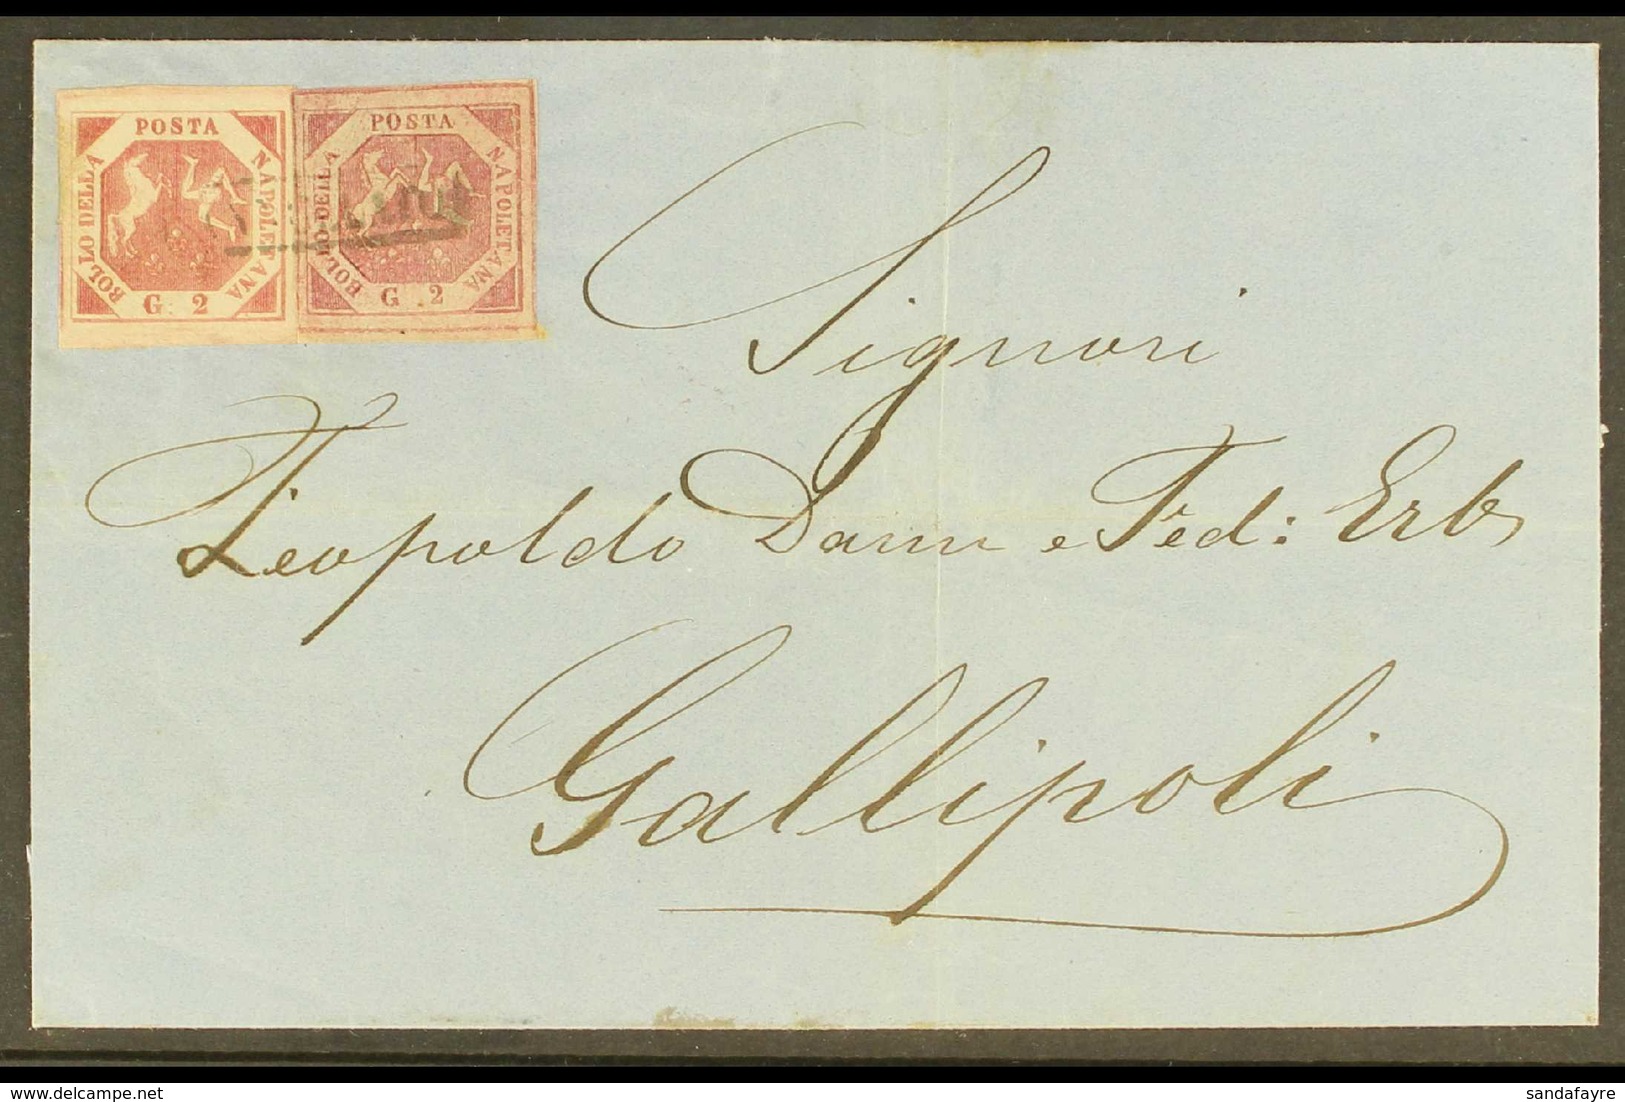 POSTA
BOLLO DELLA
NAPOLETANA
G. 2
POSTA
BOLLO DELLA
NAPOLETANA
G. 2
Signori
Leopoldo Dann e Fed: Erb
Gallipoli
sandafayre